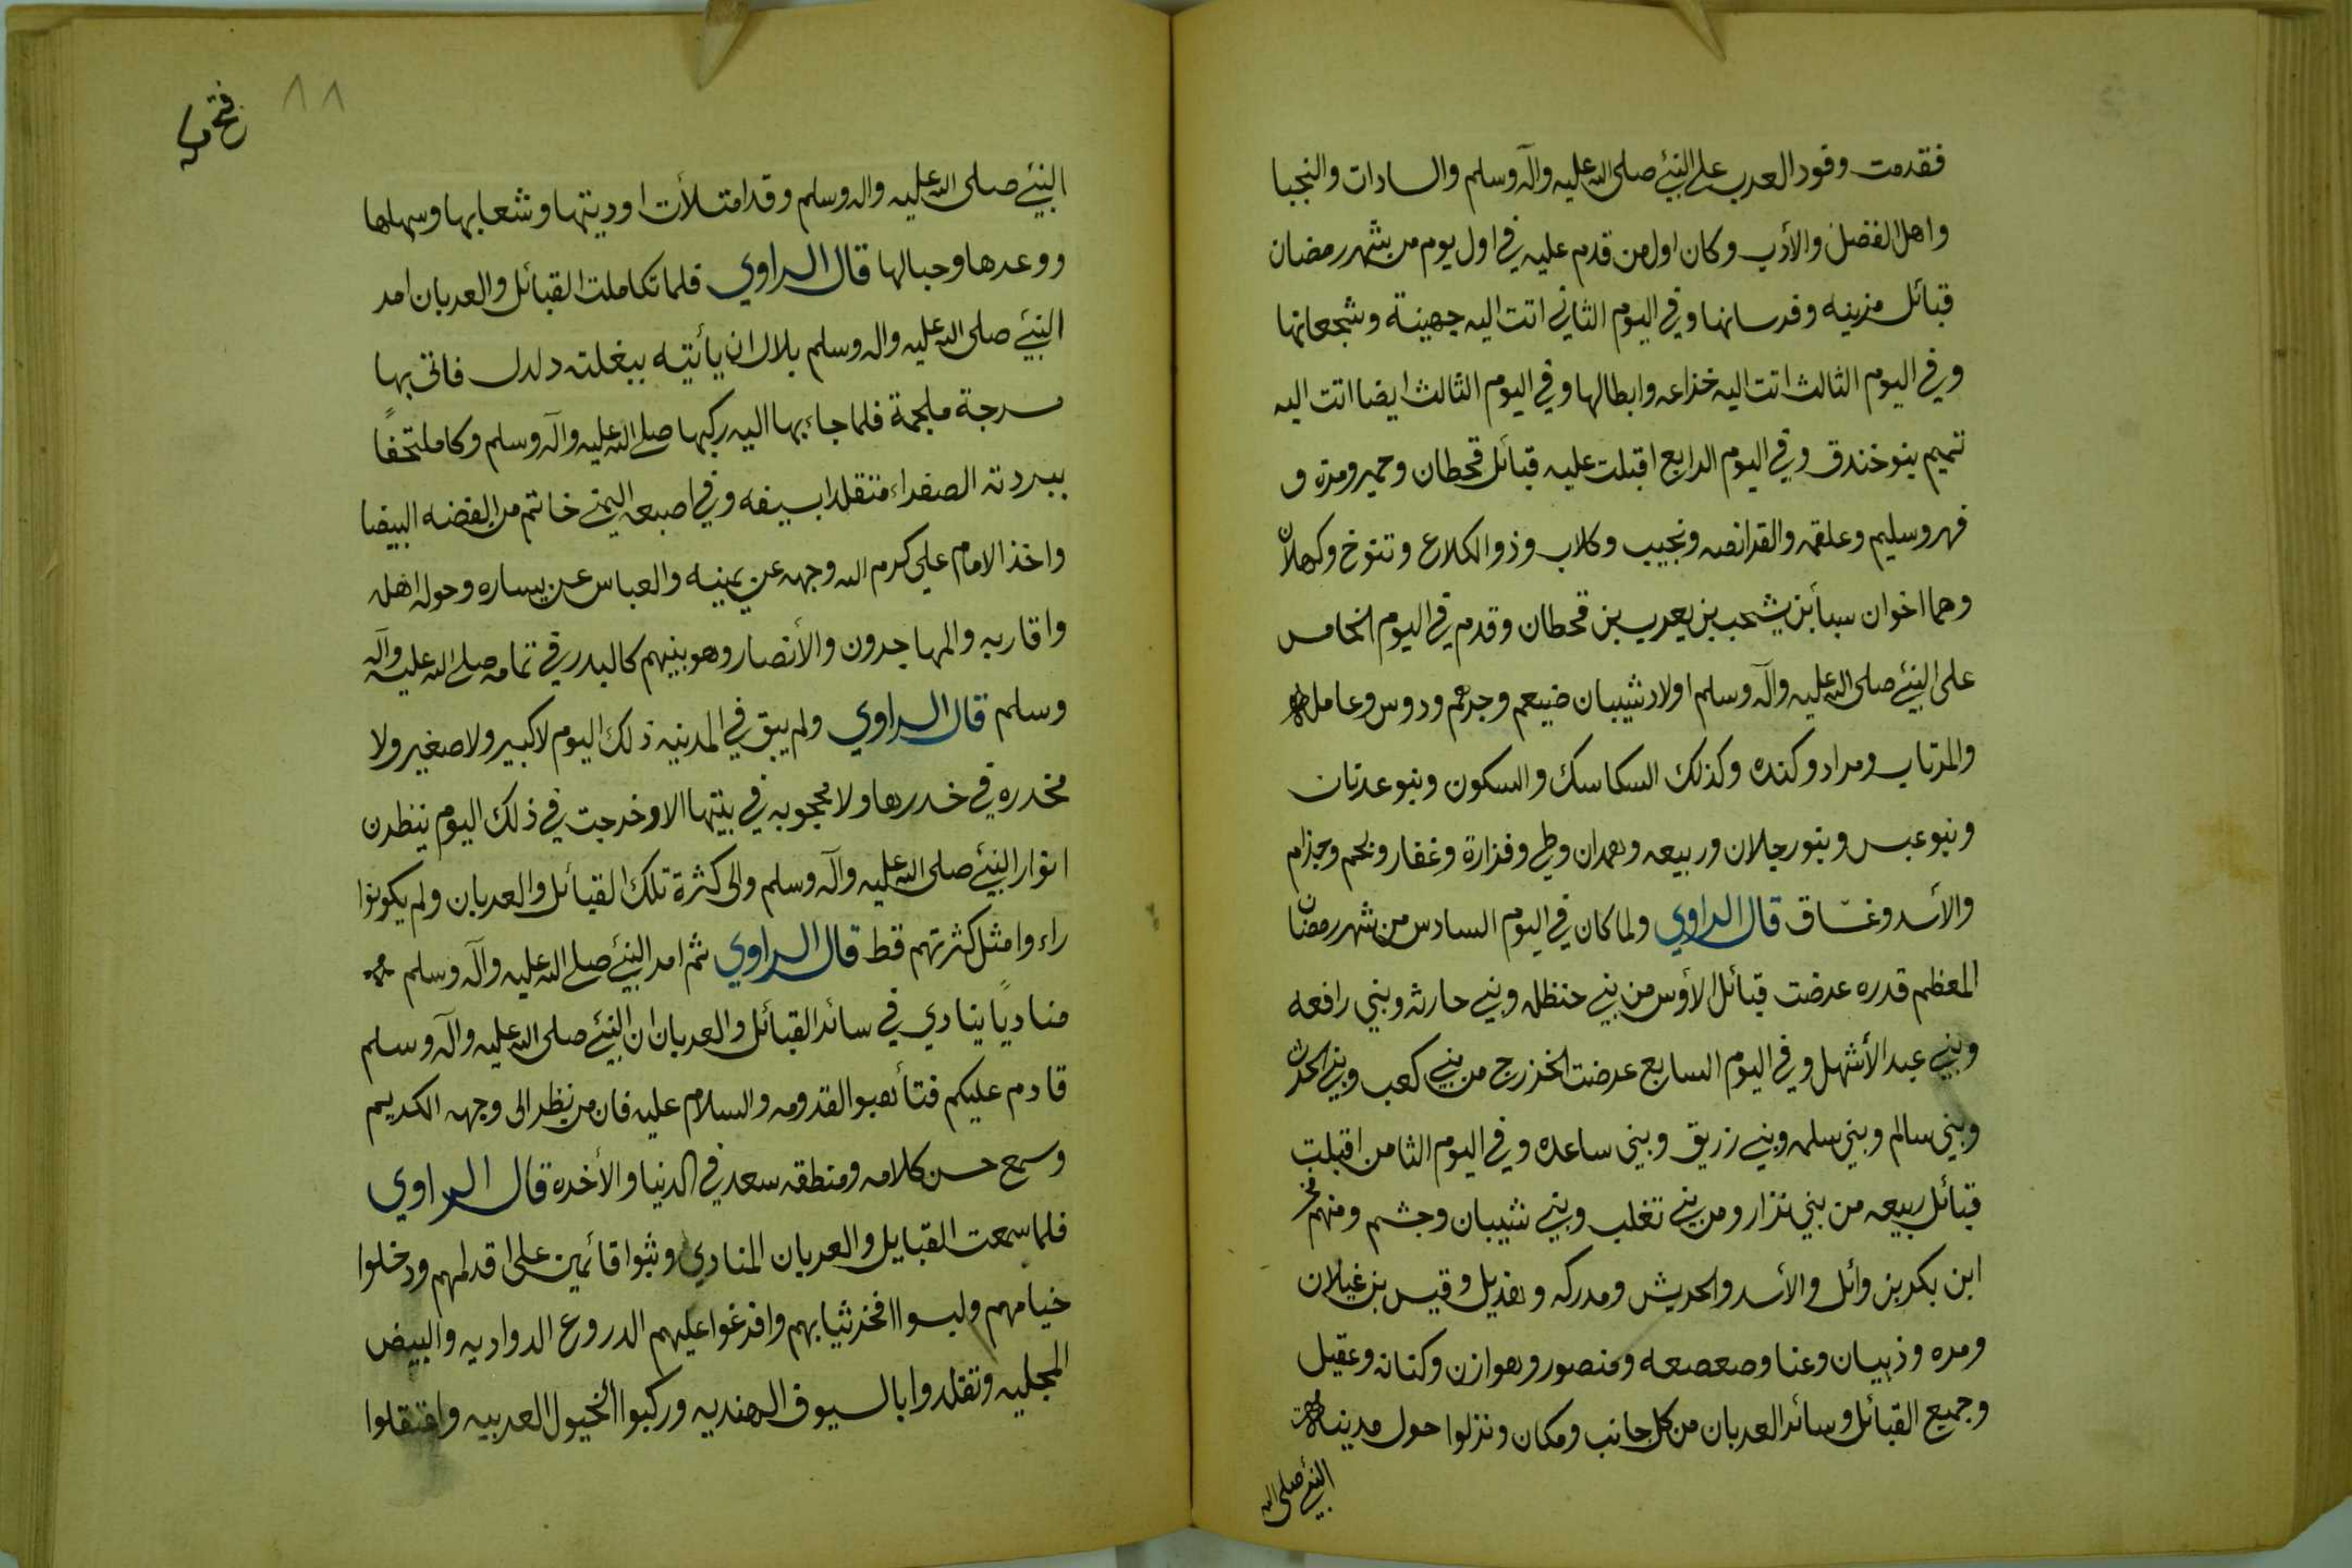 فقدمت وفود العرب علي النبئ صلى الله عليه وآله وسلم والسادات والنجبا
واهل الفضل والأدب وكان اول من قدم عليه في اول يوم من شهر رمضان
قبائل مزينه وفرسانها وفي اليوم الثاني اتت اليه جهينة وشجعانها
وفي اليوم الثالث اتت اليه خزاعه وابطالها وفي اليوم الثالث ايضا اتت اليه
تميم بنو خندق وفي اليوم الرابع اقبلت عليه قبائل قحطان وحمير ومره و
فهر وسليم وعلقمه والقرانصه ونجيب وكلاب وذو الكلاع وتنوخ وكهلان
وهما اخوان سبأ بن يشحب بن يعرب بن قحطان وقدم في اليوم الخامس
على النبئ صلى الله عليه وآله وسلم اولاد شيبان ضيعم وجرهم ودوس وعامله
والمرتاب ومراد وكنده وكذلك السكاسك والسكون وبنو عدنان
وبنو عبس وبنو رجلان وربيعه وهمدان وطي وفزارة وغفار ولخم وجذام
والأسد وغسّاق قال الراوي ولما كان في اليوم السادس من شهر رمضان
المعظم قدره عرضت قبائل الأوس من بني حنظله وبني حارثه وبني رافعه
وبني عبد الأشهل وفي اليوم السابع عرضت الخزرج من بني كعب وبني الحرث
وبني سالم وبني سلمه وبني زريق وبني ساعده وفي اليوم الثامن اقبلت
قبائل ربيعه من بني نزار ومن بني تغلب وبني شيبان وجشم ومنهم
ابن بكر بن وائل والأسد والحريش ومدركه وهذيل وقيس بن غيلان
ومره وذبيان وعنا وصعصعه ومنصور وهوازن وكنانه وعقيل
وجميع القبائل وسائر العربان من كل جانب ومكان ونزلوا حول مدينة
النبئ صلى الله
٨٨
فتح مكه
النبئ صلى الله عليه واله وسلم وقد امتلأت اوديتها وشعابها وسهلها
ووعرها وجبالها قال الراوي فلما تكاملت القبائل والعربان امر
النبئ صلى الله عليه واله وسلم بلال ان يأتيه ببغلته دلدل فاتى بها
سرجة ملجمة فلما جاء بها اليه ركبها صلى الله عليه وآله وسلم وكا ملتحفًا
ببردته الصفراء متقلدا بسيفه وفي اصبعه اليمنى خاتم من الفضه البيضا
واخذ الامام علي كرم الله وجهه عن يمينه والعباس عن يساره وحوله اهله
واقاربه والمهاجرون والأنصار وهو بينهم كالبدر في تمامه صلى الله عليه وآله
وسلم قال الراوي ولم يبق في المدينه ذلك اليوم لا كبير ولا صغير ولا
مخدره في خدرها ولا محجوبه في بيتها الا وخرجت في ذلك اليوم ينظرن
انوار النبئ صلى الله عليه وآله وسلم والى كثرة تلك القبائل والعربان ولم يكونوا
راءوا مثل كثرتهم قط قال الراوي ثم امر النبئ صلى الله عليه وآله وسلم
مناديًا ينادي في سائر القبائل والعربان ان النبئ صلى الله عليه وآله وسلم
قادم عليكم فتأهبوا القدومه والسلام عليه فان من نظر الى وجهه الكريم
وسمع حسن كلامه ومنطقه سعد في الدنيا والأخره قال الراوي
فلما سمعت القبايل والعربان المنادي وثبوا قائمين على اقدامهم ودخلوا
خيامهم ولبسوا افخر ثيابهم وافرغوا عليهم الدروع الدواديه والبيض
المجليه وتقلدوا بالسيوف الهنديه وركبوا الخيول العربيه واعتقلوا